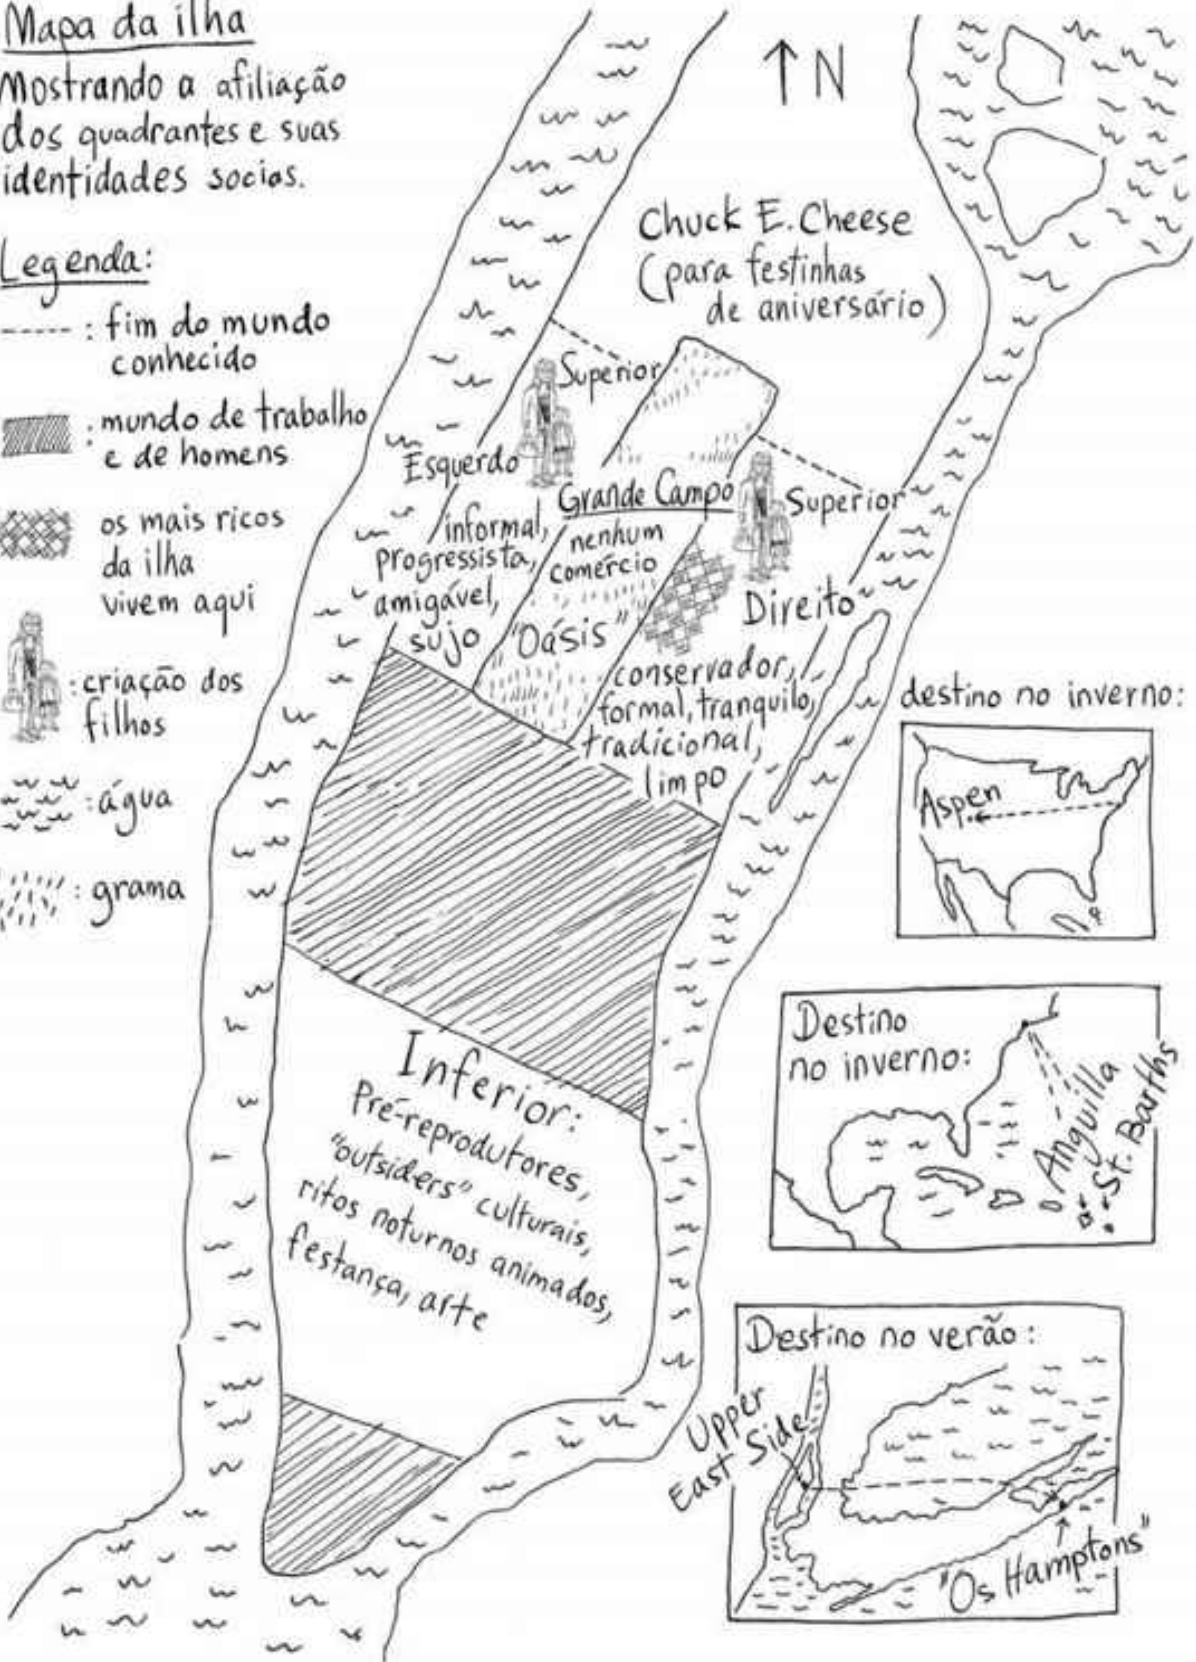 Mapa da ilha
Mostrando a afiliação
dos quadrantes e suas
identidades socias.
Legenda:
: fim do mundo
conhecido
: mundo de trabalho
e de homens
os mais ricos
da ilha
vivem aqui
: criação dos
filhos
: água
: grama
↑ N
Chuck E. Cheese
(para festinhas
de aniversário)
Superior
Esquerdo
informal,
progressista,
amigável,
sujo
Grande Campo
nenhum
comércio
"Oásis"
Superior
Direito
conservador,
formal, tranquilo,
tradicional,
limpo
Inferior:
Pré-reprodutores,
"outsiders" culturais,
ritos noturnos animados,
festança, arte
destino no inverno:
Aspen
Destino
no inverno:
Anguilla
St. Barths
Destino no verão:
Upper
East Side
"Os Hamptons"